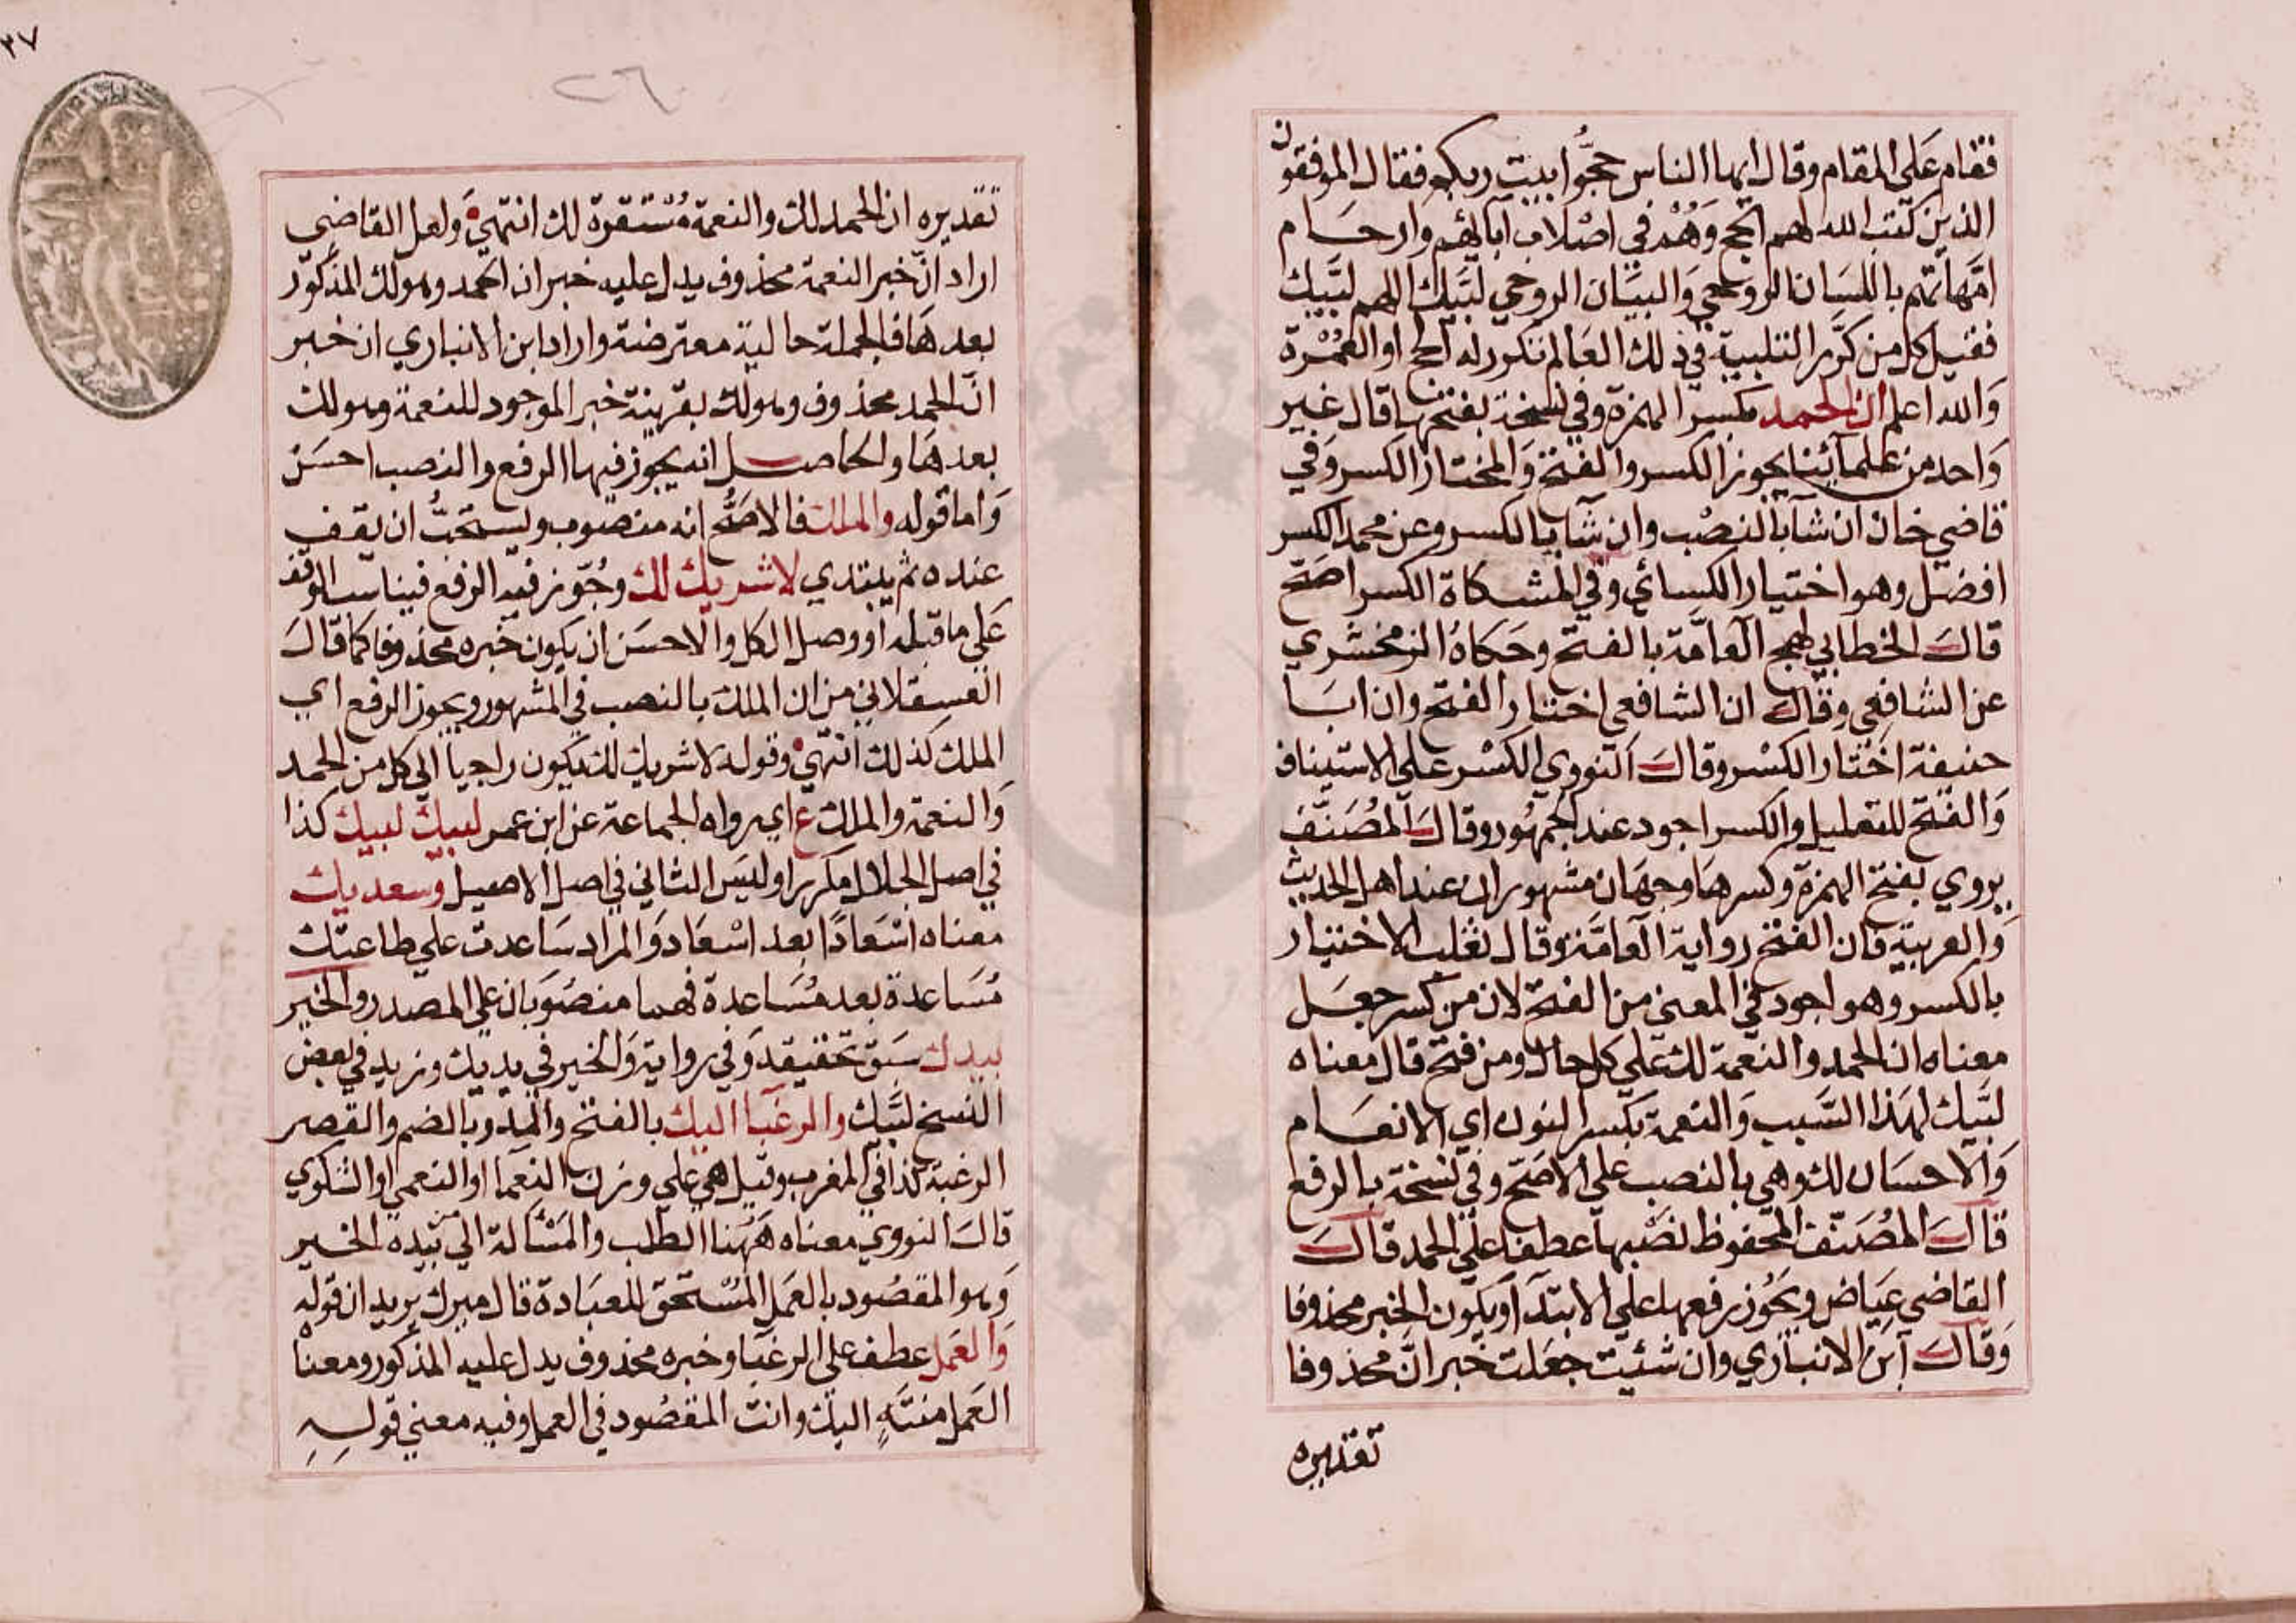 فقام على المقام وقال ايها الناس حجوا بيت ربكم فقال الموفقون
الذين كتب الله لهم الحج وهم في اصلاب آبائهم وارحام
امهاتهم باللسان الروحي والبيان الروحي لبيك اللهم لبيك
فقيل كل من كرر التلبية في ذلك العالم تكرر له الحج او العمرة
والله اعلم ان الحمد بكسر الهمزة وفي نسخة بفتحها قال غير
واحد من علمائنا يجوز الكسر والفتح والمختار الكسر وفي
قاضي خان ان شآ بالنصب وان شآ بالكسر وعن محمد الكسر
افضل وهو اختيار الكسائي وفي المشكاة الكسر اصح
قال الخطابي لهج العامة بالفتح وحكاه الزمخشري
عن الشافعي وقال ان الشافعي اختار الفتح وان ابا
حنيفة اختار الكسر وقال النووي الكسر على الاستيناف
والفتح للتعليل والكسر اجود عند الجمهور وقال المصنف
يروي بفتح الهمزة وكسرها وجهان مشهوران عند اهل الحديث
والعربية فان الفتح رواية العامة وقال ثعلب الاختيار
بالكسر وهو اجود في المعنى من الفتح لان من كسر جعل
معناه ان الحمد والنعمة لك على كل حال ومن فتح قال معناه
لبيك لهذا السبب والنعمة بكسر النون اي الانعام
والاحسان لك وهي بالنصب على الاصح وفي نسخة بالرفع
قال المصنف المحفوظ نصبها عطفا على الحمد قال
القاضي عياض ويجوز رفعها على الابتدآ ويكون الخبر محذوفا
وقال ابن الانباري وان شئيت جعلت خبر ان محذوفا
تقديره
٢٧
٢٦
تقديره ان الحمد لك والنعمة مستقرة لك انتهى ولعل القاضي
اراد ان خبر النعمة محذوف يدل عليه خبر ان الحمد وهو لك المذكور
بعدها فالجملة حالية معترضة واراد ابن الانباري ان خبر
ان الحمد محذوف وهو لك بقرينة خبر الموجود للنعمة وهو لك
بعدها والحاصل انه يجوز فيها الرفع والنصب احسن
واما قوله والملك فالاصح انه منصوب ويستحب ان يقف
عنده ثم يبتدي لا شريك لك وجوز فيه الرفع فيناسب الوقف
على ما قبله او وصل الكل والاحسن ان يكون خبره محذوفا كما قال
العسقلاني من ان الملك بالنصب في المشهور ويجوز الرفع اي
الملك كذلك انتهى وقوله لا شريك لك يكون راجيا الى كل من الحمد
والنعمة والملك ع اي رواه الجماعة عن ابن عمر لبيك لبيك كذا
في اصل الجلال مكررا وليس الثاني في اصل الاصيل وسعديك
معناه اسعادا بعد اسعاد والمراد ساعدت على طاعتك
مساعدة بعد مساعدة فهما منصوبان على المصدر والخير
بيدك سبق تحقيقه وفي رواية والخير في يديك وزيد في بعض
النسخ لبيك والرغبا اليك بالفتح والمد وبالضم والقصر
الرغبة كذا في المغرب وقيل هي على وزن النعما او النعمى او الشكوى
قال النووي معناه ههنا الطلب والمسالة الى بيده الخير
وهو المقصود بالعمل المستحق للعبادة قال ميرك يريد ان قوله
والعمل عطف على الرغبا وخبره محذوف يدل عليه المذكور ومعناه
العمل منته اليك وانت المقصود في العمل وفيه معنى قوله